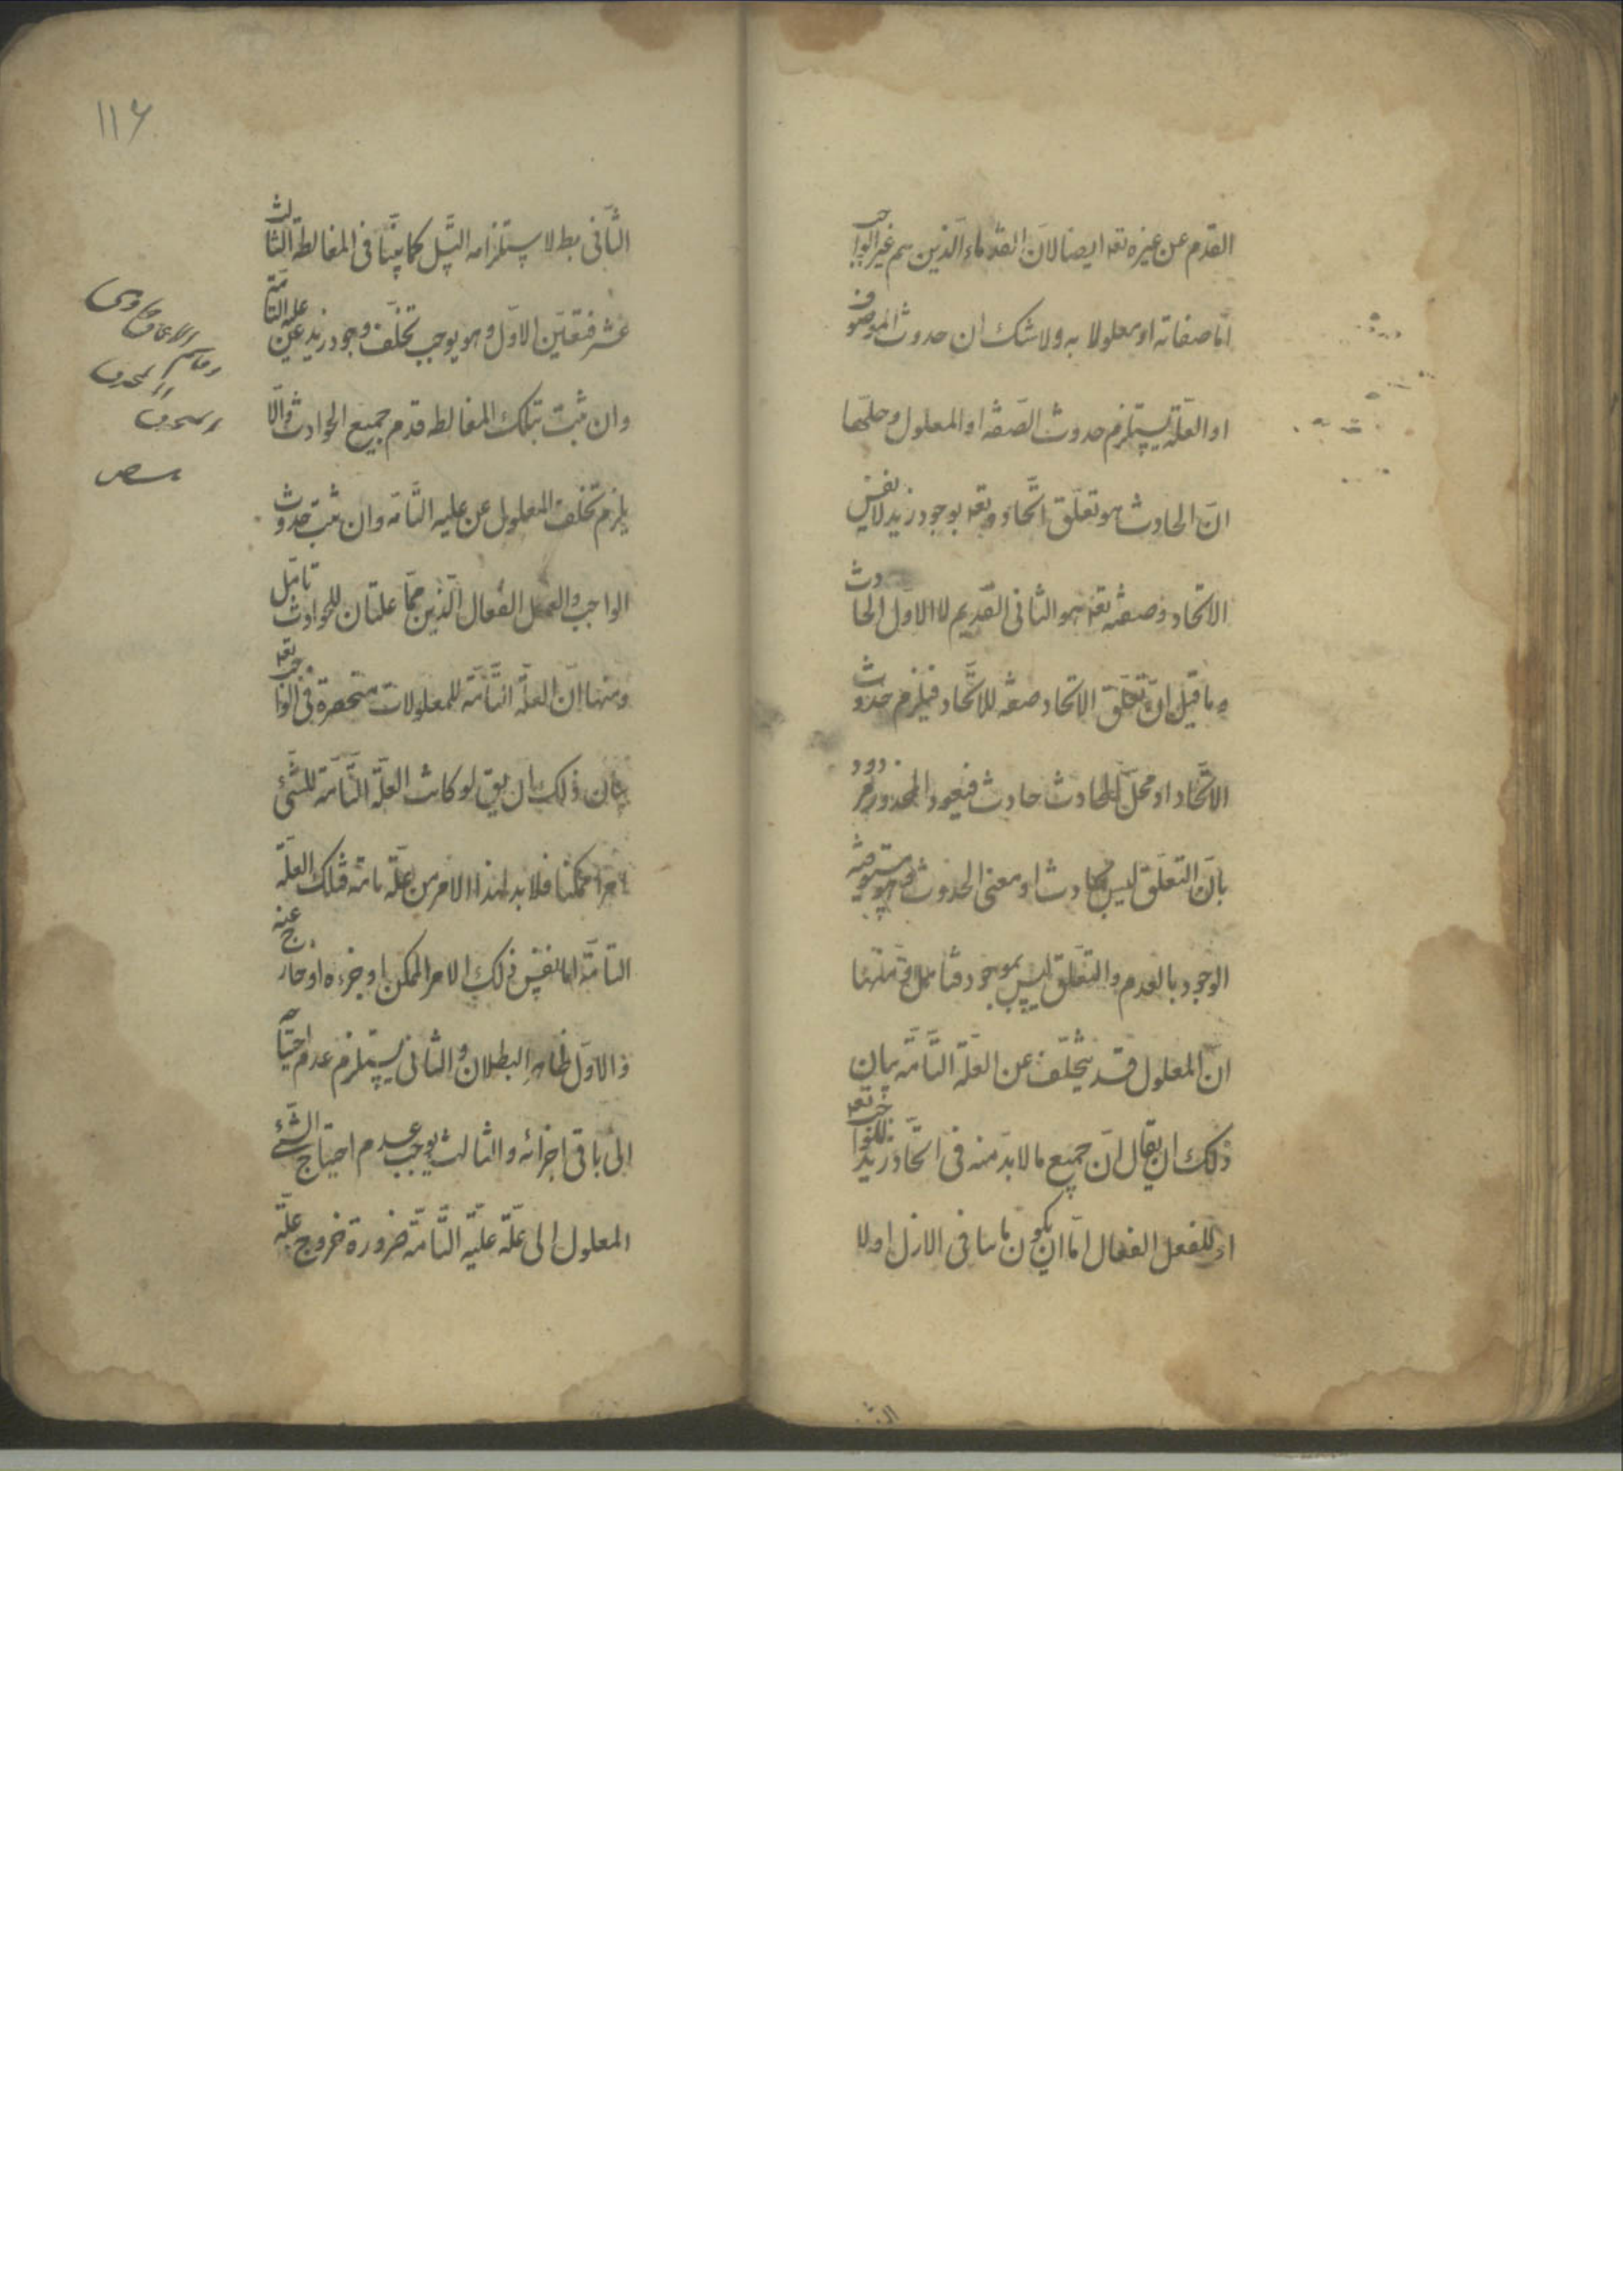 القدم عن غيره تعه ايضا لان القدماء الذين هم غير الواجب
اما صفاته او معلولا به ولا شك ان حدوث الموصوف
او العلّة يستلزم حدوث الصّفه او المعلول وحلّها
انّ الحادث هو تعلّق اتّحاده تعه بوجود زيد لا نفس
الاتحاد وصفته تعه هو الثانى القديم لا الاول الحادث
وما قيل انّ تعلّق الاتحاد صفه للاتّحاد فيلزم حدوث
الاتّحاد او محلّ الحادث حادث فيعود المحذور مردود
بانّ التعلّق ليس بحادث اذ معنى الحدوث هو مسبوقية
الوجود بالعدم والتعلّق ليس بموجود فتامل ومنها
انّ المعلول قد يتخلّف عن العلّة التامّه بيان
ذلك ان يقال انّ جميع ما لابدّ منه فى اتّحاد زيد للواجب تعه
او للفعل الفعال امّا ان يكون ثابتا فى الازل او لا
١١٦
الثّانى بط لاستلزامه التسل كما بيّنّا فى المغالطة الثالث
عشر فتعيّن الاوّل وهو يوجب تخلّف وجود زيد عن علته التامّة
وان ثبت بتلك المغالطه قدم جميع الحوادث والّا
يلزم تخلّف المعلول عن علته التّامّه وان ثبت حدوث
الواجب والعقل الفعال الّذين همّا علّتان للحوادث تامّل
ومنها انّ العلّة التّامّة للمعلولات منحصرة فى الواجب تعه
بيان ذلك ان يق لو كانت العلّة التّامّة للشّئ
امرا ممكنا فلا بد لهذا الامر من علّة تامّة فتلك العلّة
التامّة اما نفس ذلك الامر الممكن او جزءه او خارج عنه
والاوّل ظاهر البطلان والثانى يستلزم عدم احتياجه
الى باقى اجزائه والثالث يوجب عدم احتياج الشّئ
المعلول الى علّة علّته التّامّة ضرورة خروج علّة